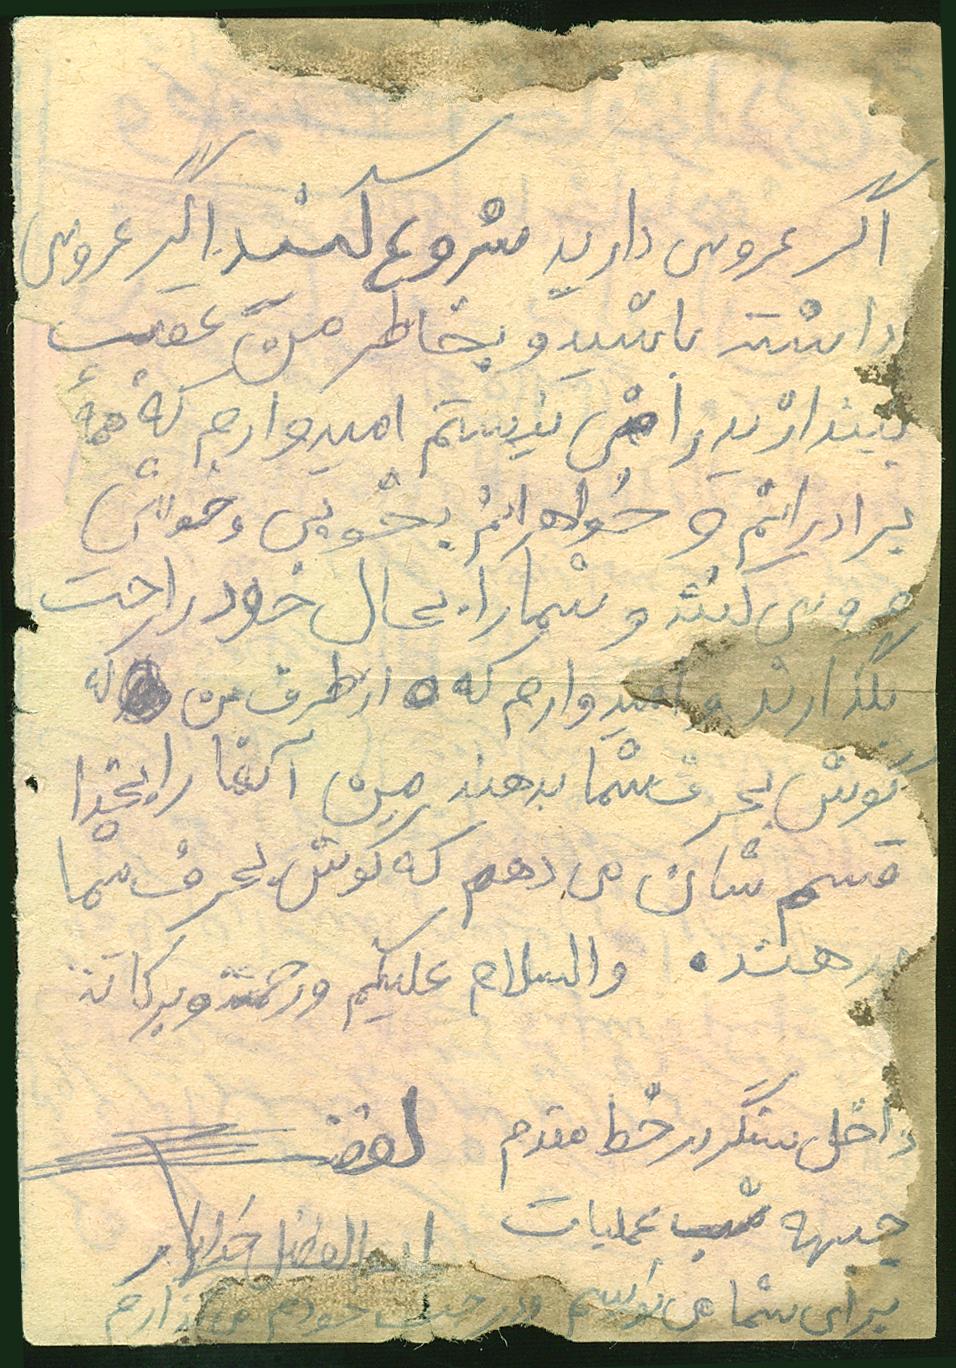 اگر عروسی دارید شروع کنید. اگر عروسی
داشته باشید و بخاطر من عقب
بیندازید راضی نیستم امیدوارم که همهٔ
برادرانم و خواهرانم بخوبی و خوشی
عروسی کنند و شما را بحال خود راحت
بگذارند و امیدوارم که از طرف من که
گوش بحرف شما بدهند من آنها را بخدا
قسم شان می دهم که گوش بحرف شما
بدهند. والسلام علیکم ورحمته وبرکاته
داخل سنگر در خط مقدم
جبهه شب عملیات
ابوالفضل
برای شما می نویسم و در جیب خودم می گذارم